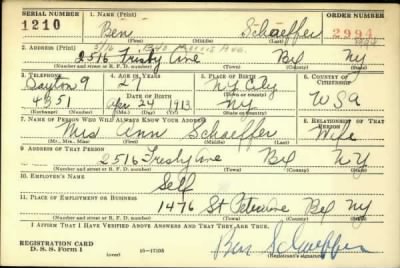 SERIAL NUMBER 1. NAME (Print) ORDER NUMBER
1210 Ben Schaeffer 2994
(First) (Middle) (Last)
2. ADDRESS (Print)
2516 Frisby Ave Bx NY
(Number and street or R. F. D. number) (Town) (County) (State)
3. TELEPHONE 4. AGE IN YEARS 5. PLACE OF BIRTH 6. COUNTRY OF CITIZENSHIP
9 27 N Y City
4351 DATE OF BIRTH (Town or county)
Apr 24 1913 NY USA
(Exchange) (Number) (Mo.) (Day) (Yr.) (State or country)
7. NAME OF PERSON WHO WILL ALWAYS KNOW YOUR ADDRESS 8. RELATIONSHIP OF THAT PERSON
Mrs Ann Schaeffer Wife
(Mr., Mrs., Miss) (First) (Middle) (Last)
9. ADDRESS OF THAT PERSON
2516 Frisby Ave Bx NY
(Number and street or R. F. D. number) (Town) (County) (State)
10. EMPLOYER'S NAME
Self
11. PLACE OF EMPLOYMENT OR BUSINESS
1476 St Bx NY
(Number and street or R. F. D. number) (Town) (County) (State)
I AFFIRM THAT I HAVE VERIFIED ABOVE ANSWERS AND THAT THEY ARE TRUE.
REGISTRATION CARD
D. S. S. FORM 1 (over) 16—17105 Ben Schaeffer
(Registrant's signature)